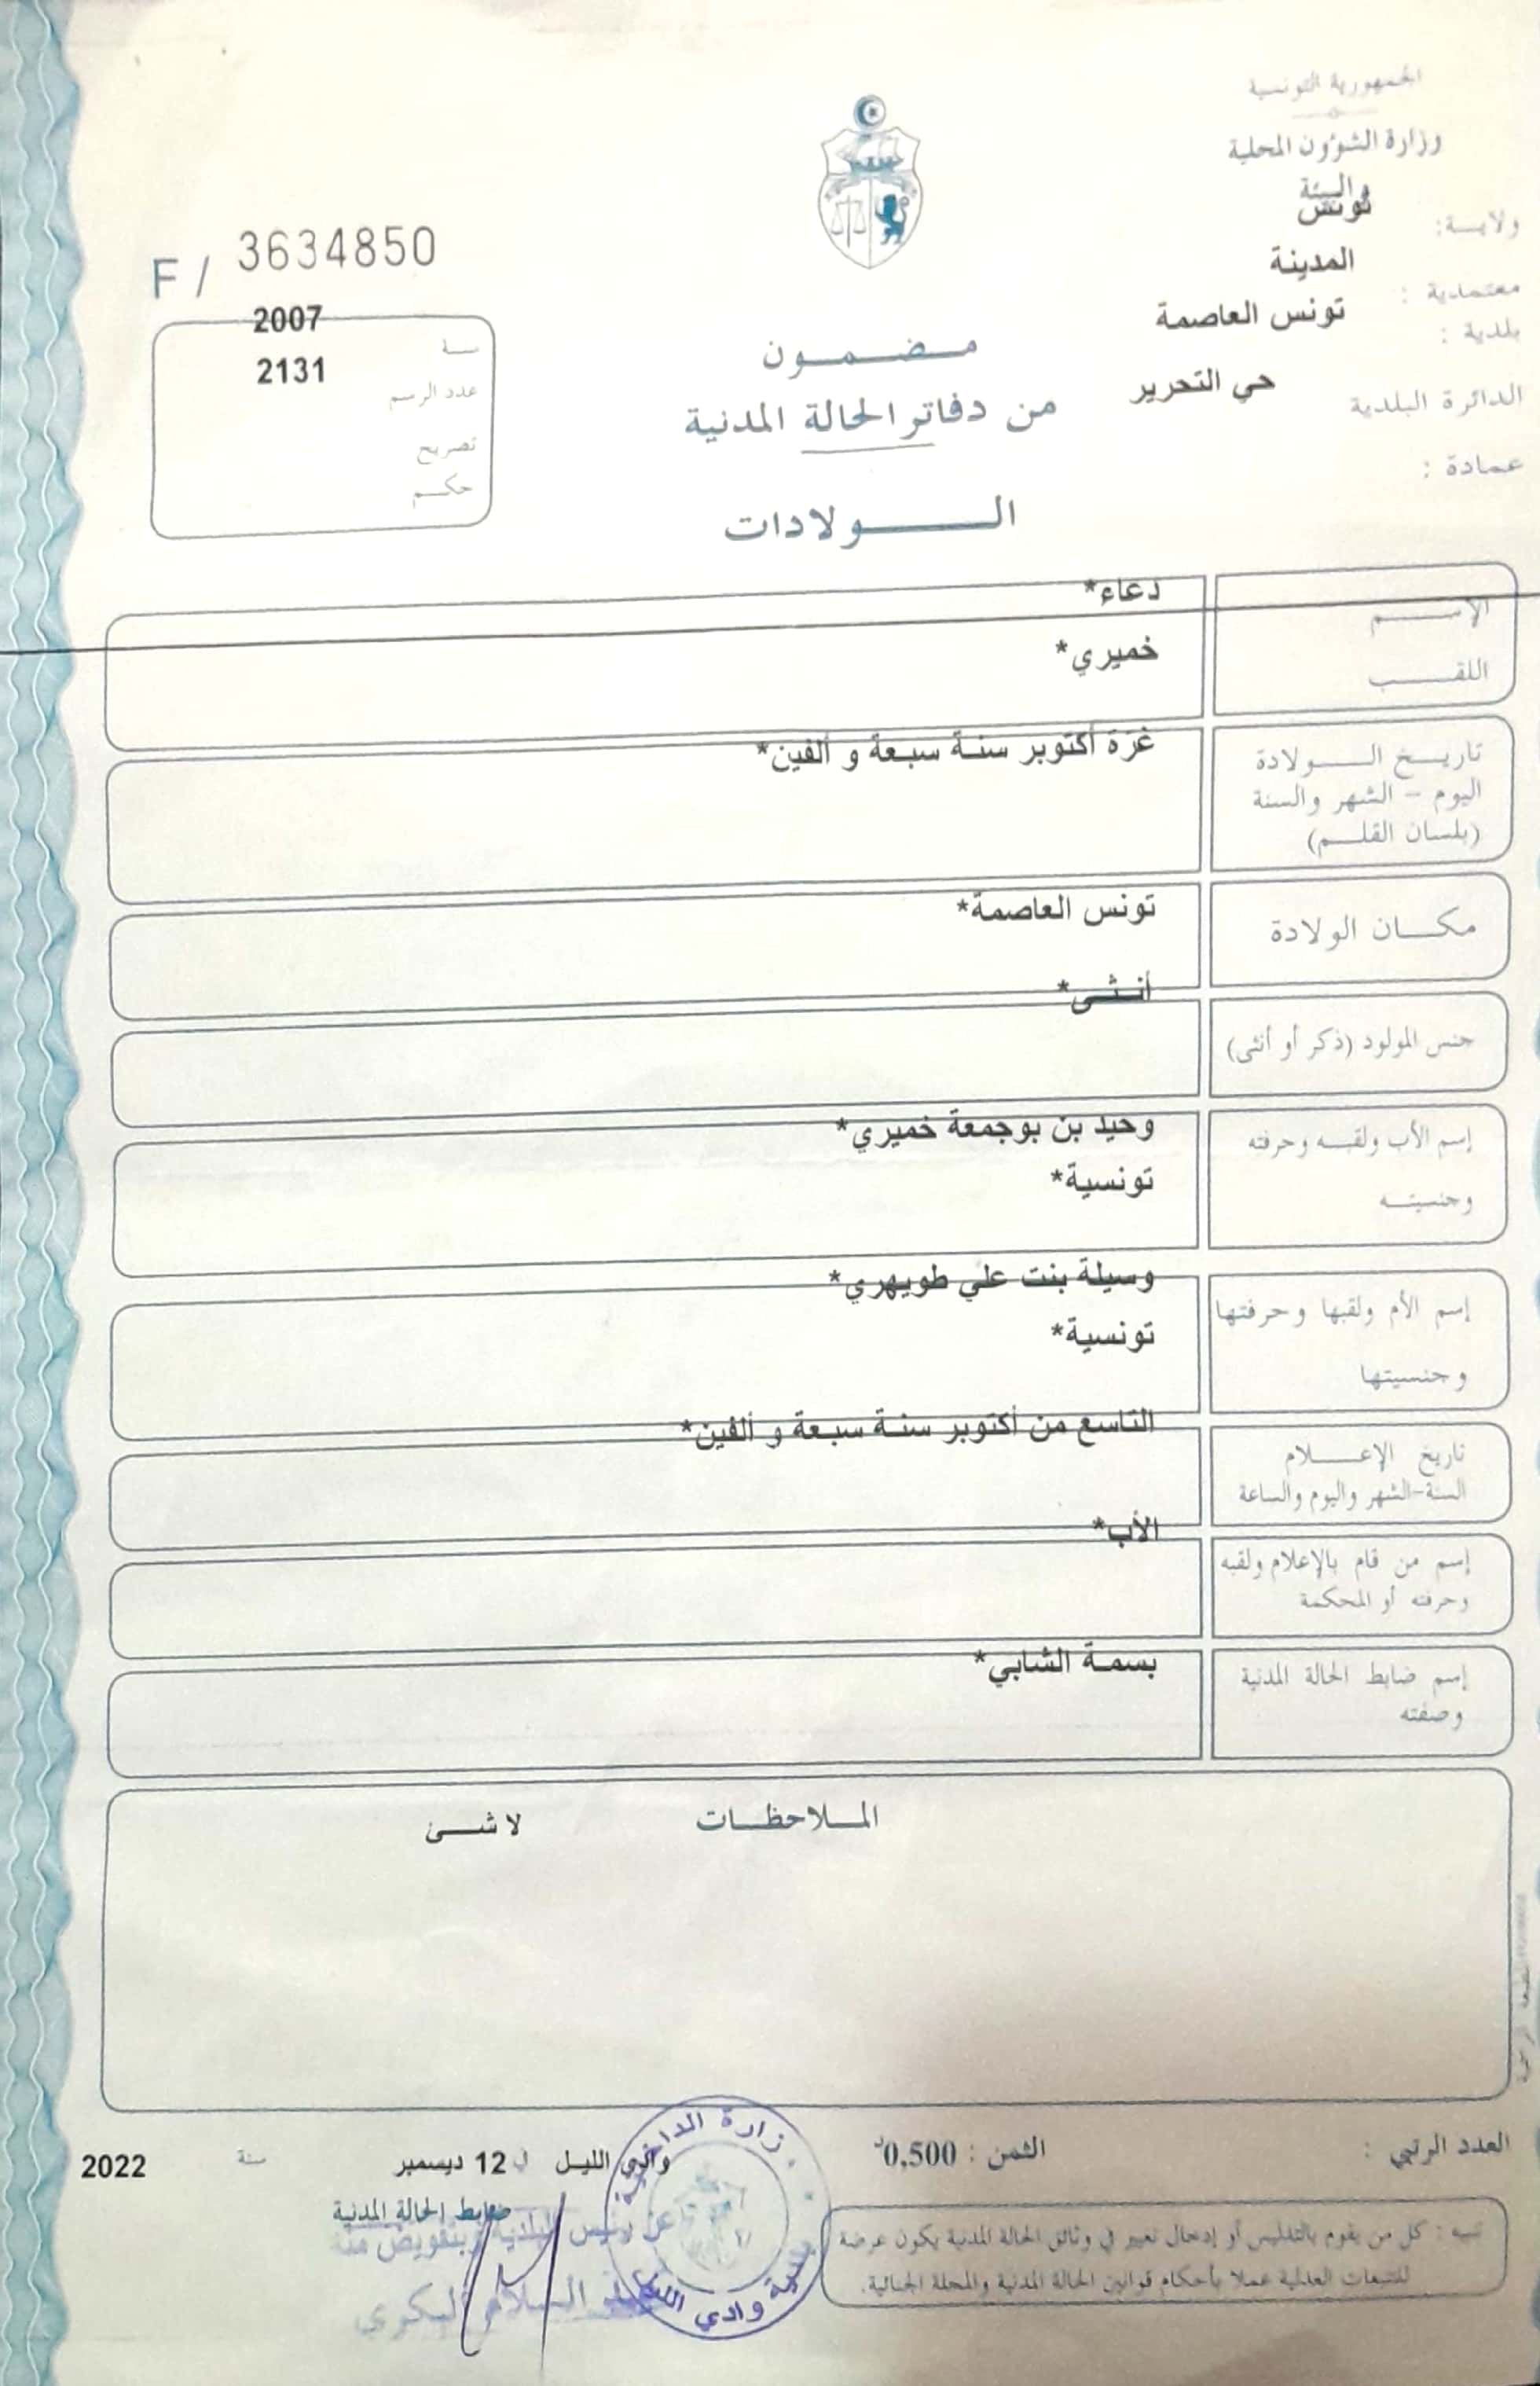 الجمهورية التونسية
وزارة الشؤون المحلية
والبيئة
ولايـــة: تونس
معتمدية : المدينة
بلدية : تونس العاصمة
الدائرة البلدية حي التحرير
عمادة :
F / 3634850
سنة 2007
عدد الرسم 2131
تصريح
حكم
مضمون
من دفاتر الحالة المدنية
الولادات
الإسم دعاء*
اللقب خميري*
تاريخ الولادة غرّة أكتوبر سنة سبعة و ألفين*
اليوم - الشهر والسنة
(بلسان القلم)
مكان الولادة تونس العاصمة*
أنثى*
جنس المولود (ذكر أو أنثى)
إسم الأب ولقبه وحرفته وحيد بن بوجمعة خميري*
وجنسيته تونسية*
وسيلة بنت علي طويهري*
إسم الأم ولقبها وحرفتها
تونسية*
وجنسيتها
التاسع من أكتوبر سنة سبعة و ألفين*
تاريخ الإعلام
السنة-الشهر واليوم والساعة
الأب*
إسم من قام بالإعلام ولقبه
وحرفته أو المحكمة
إسم ضابط الحالة المدنية بسمة الشابي*
وصفته
الملاحظات لا شئ
العدد الرتبي : الثمن : 0,500د وادي الليل في 12 ديسمبر سنة 2022
ضابط الحالة المدنية
عن رئيس البلدية وبتفويض منه
السلام البكري
وزارة الداخلية
بلدية وادي الليل
تنبيه : كل من يقوم بالتدليس أو إدخال تغيير في وثائق الحالة المدنية يكون عرضة
للتتبعات العدلية عملا بأحكام قوانين الحالة المدنية والمجلة الجنائية.